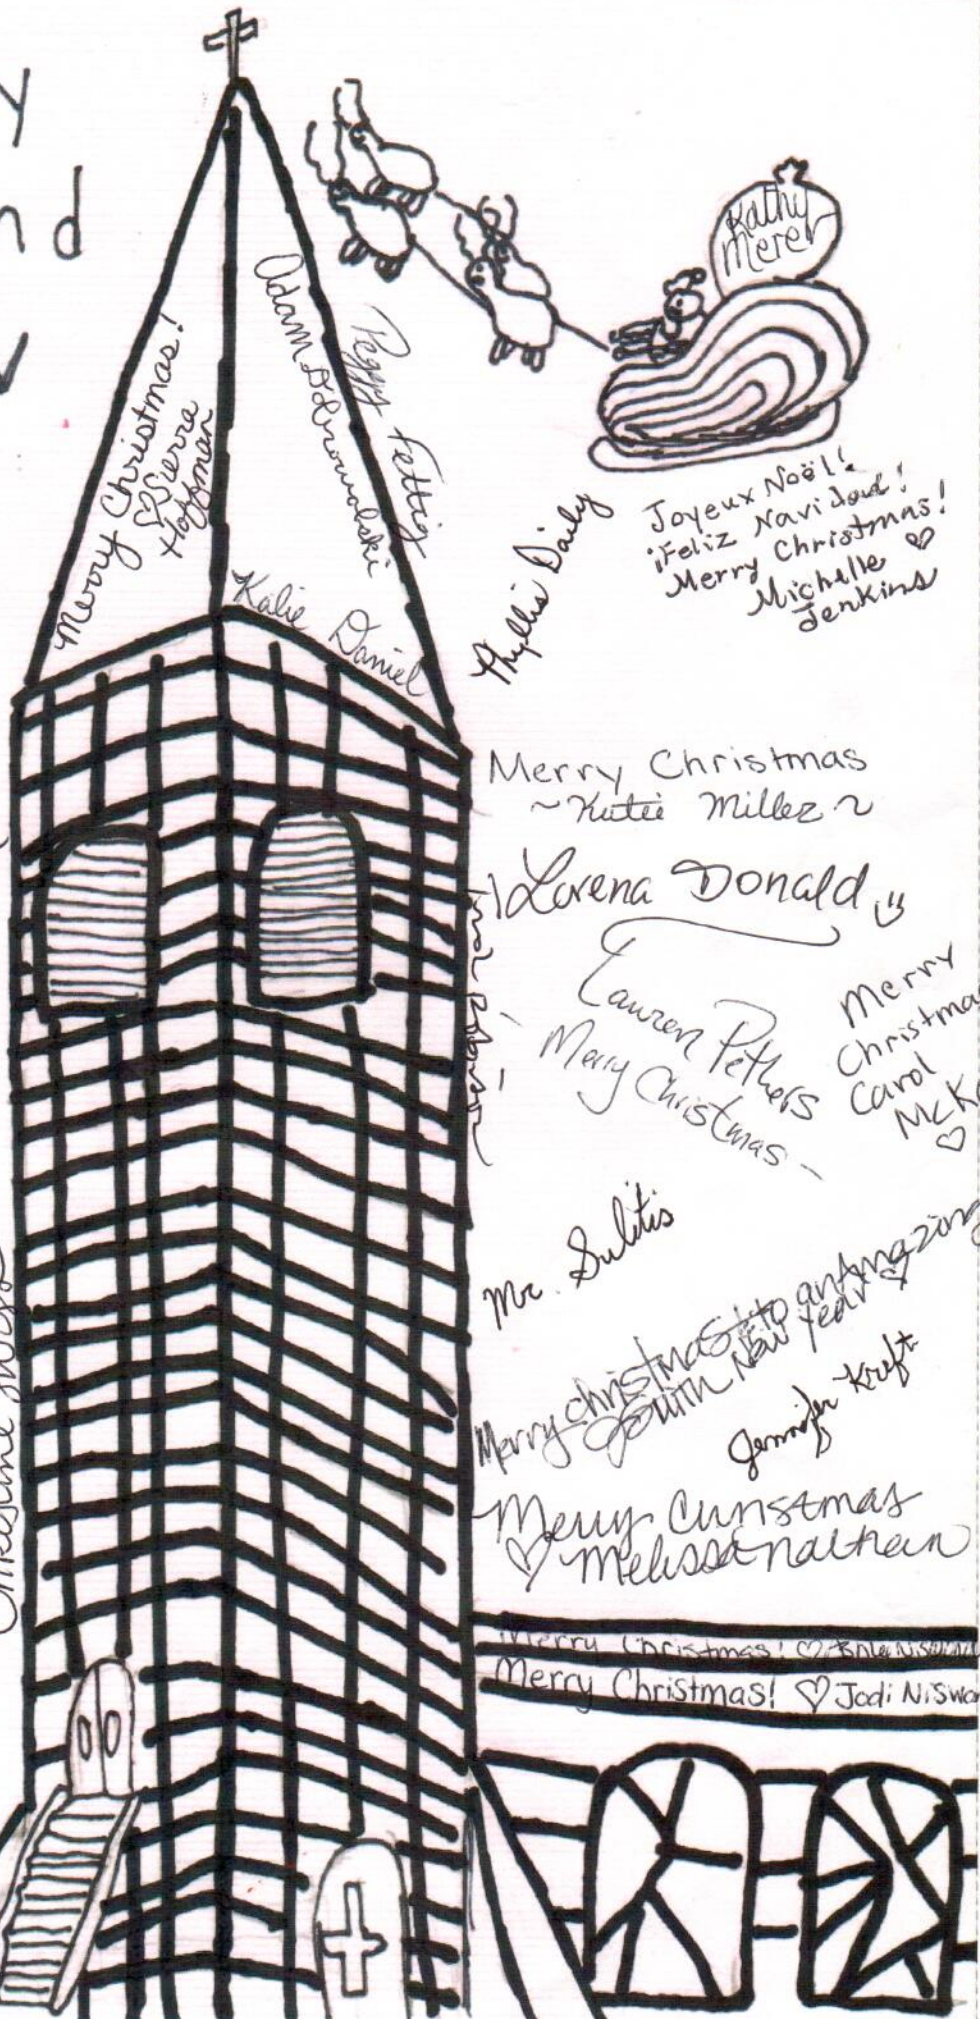 Kathy
Merer
Merry Christmas!
♡ Sierra
Hoffman
Adam
Peggy Fettig
Katie Daniel
Phyllis Daily
Joyeux Noël!
¡Feliz Navidad!
Merry Christmas!
Michelle ♡
Jenkins
Merry Christmas
~Katie Miller~
Lorena Donald
Lauren Pethers
Merry Christmas -
Merry
Christmas
Carol
McK
♡
Mr. Sulitis
Merry christmas & to an Amazing
New Year ♡
Jennifer Kreft
Merry Christmas
♡ Melissa Nathan
Merry Christmas! ♡
Merry Christmas! ♡ Jodi Niswo